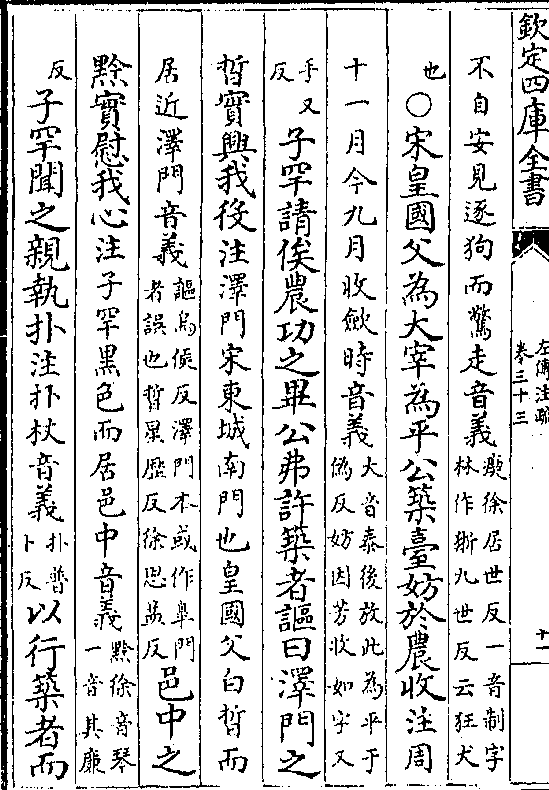 欽定四庫全書
左傳注疏
卷三十三
十一
不自安見逐狗而驚走音義瘈徐居世反一音制字
林作狾九世反云狂犬
也○宋皇國父為大宰為平公築臺妨於農收注周
十一月今九月收斂時音義大音泰後放此為平于
偽反妨因芳收如字又
手又
反子罕請俟農功之畢公弗許築者謳曰澤門之
晳實興我役注澤門宋東城南門也皇國父白晳而
居近澤門音義謳烏侯反澤門本或作臯門
者誤也晳星歴反徐思益反邑中之
黔實慰我心注子罕黑色而居邑中音義黔徐音琴
一音其廉
反子罕聞之親執扑注扑杖音義扑普
卜反以行築者而